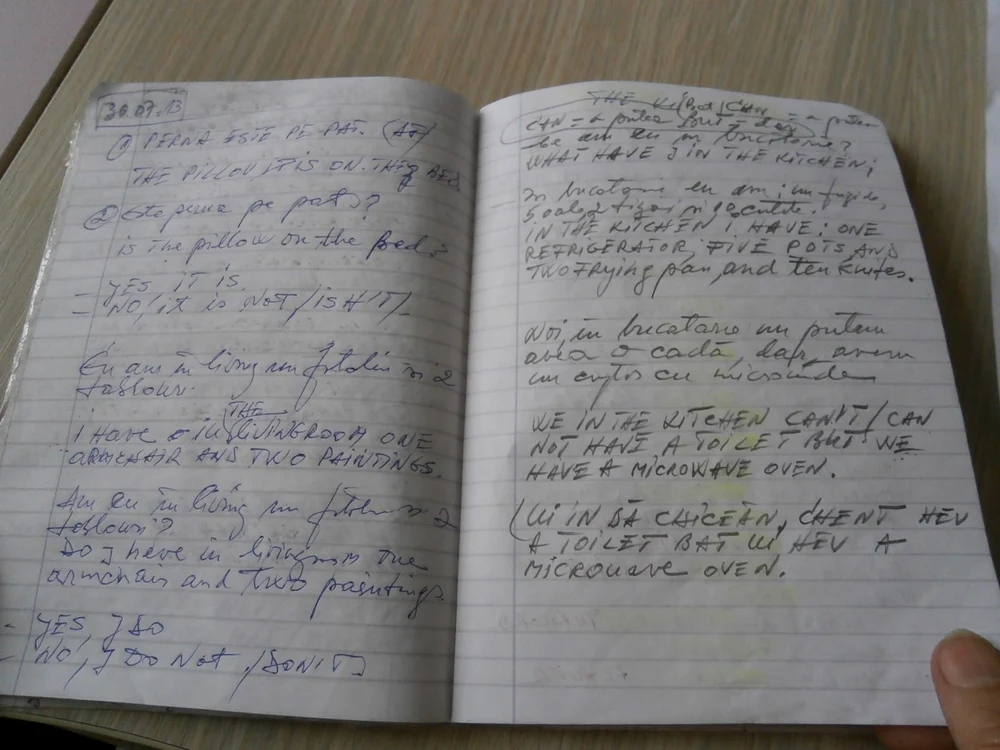 30.07.13
① PERNA ESTE PE PAT.
THE PILLOW IT IS ON THE BED.
② Este perna pe pat?
is the pillow on the bed?
- YES, IT IS.
- NO, it is NOT / ISN'T/
Eu am în living un fotoliu și 2
tablouri.
THE
I HAVE IN LIVINGROOM ONE
ARMCHAIR AND TWO PAINTINGS.
Am eu în living un fotoliu și 2
tablouri?
DO I have in livingroom one
armchair and two paintings.
- YES, I DO
- NO, I DO NOT /DON'T
THE
CAN = a putea BUT = dar
WHAT HAVE I IN THE KITCHEN;
În bucatarie eu am; un frigider,
5 oale, 2 tigai si 10 cutite.
IN THE KITCHEN I HAVE; ONE
REFRIGERATOR, FIVE POTS, AND
TWO FRying pan, and ten knifes.
Noi, în bucatarie nu putem
avea o cadă, dar, avem
un cuptor cu microunde
WE IN THE KITCHEN CAN'T / CAN
NOT HAVE A TOILET BUT WE
HAVE A MICROWAVE OVEN.
(UI IN DĂ CHICEĂN, CHENT HEV
A TOILET BAT UI HEV A
MICROUAVE OVEN.